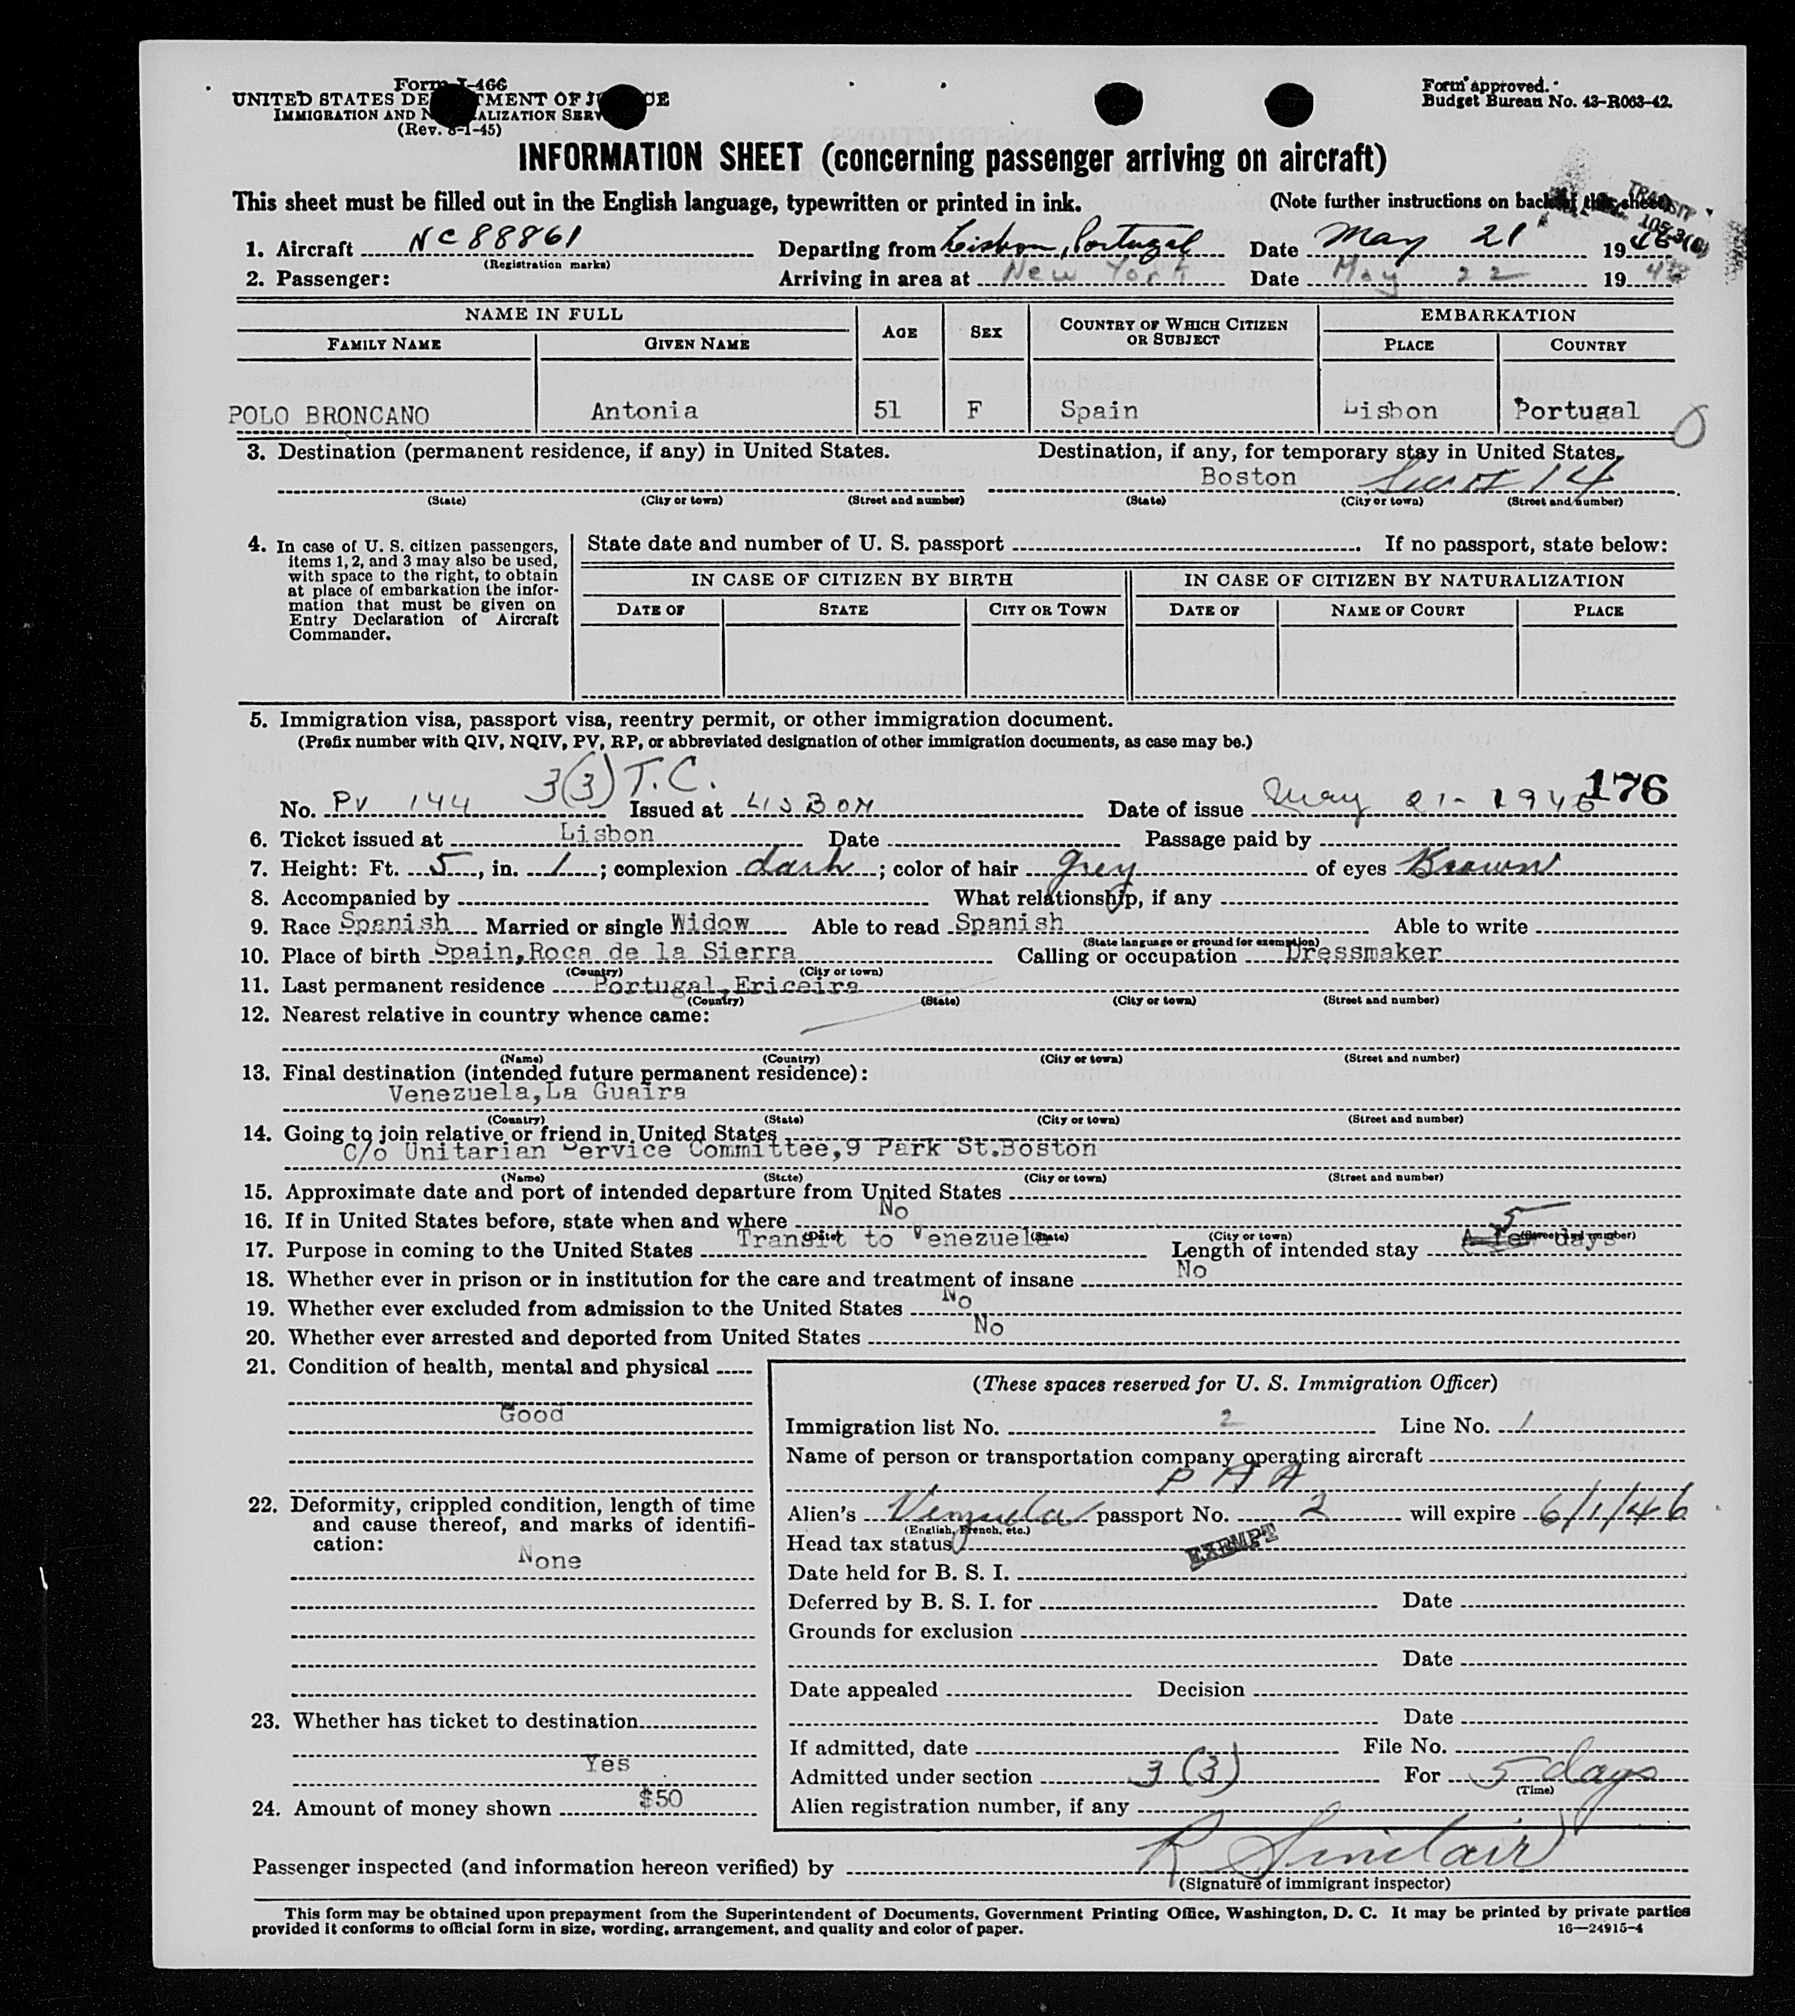 Form I-466
UNITED STATES DE TMENT OF J CE
IMMIGRATION AND N ALIZATION SERV
(Rev. 8-1-45)
Form approved.
Budget Bureau No. 43-R063-42.
INFORMATION SHEET (concerning passenger arriving on aircraft)
This sheet must be filled out in the English language, typewritten or printed in ink. (Note further instructions on back of this sheet)
TRANSIT
105.3(6)
1. Aircraft NC88861 Departing from Lisbon, Portugal Date May 21 1946
(Registration marks)
2. Passenger: Arriving in area at New York Date May 22 1946
NAME IN FULL AGE SEX COUNTRY OF WHICH CITIZEN OR SUBJECT EMBARKATION
FAMILY NAME GIVEN NAME PLACE COUNTRY
POLO BRONCANO Antonia 51 F Spain Lisbon Portugal
3. Destination (permanent residence, if any) in United States. Destination, if any, for temporary stay in United States.
Boston 14
(State) (City or town) (Street and number) (State) (City or town) (Street and number)
4. In case of U. S. citizen passengers, items 1, 2, and 3 may also be used, with space to the right, to obtain at place of embarkation the information that must be given on Entry Declaration of Aircraft Commander.
State date and number of U. S. passport . If no passport, state below:
IN CASE OF CITIZEN BY BIRTH IN CASE OF CITIZEN BY NATURALIZATION
DATE OF STATE CITY OR TOWN DATE OF NAME OF COURT PLACE
5. Immigration visa, passport visa, reentry permit, or other immigration document.
(Prefix number with QIV, NQIV, PV, RP, or abbreviated designation of other immigration documents, as case may be.)
3(3) T.C. 176
No. PV 144 Issued at LISBON Date of issue May 21-1946
6. Ticket issued at Lisbon Date Passage paid by
7. Height: Ft. 5, in. 1; complexion dark; color of hair grey of eyes Brown
8. Accompanied by What relationship, if any
9. Race Spanish Married or single Widow Able to read Spanish Able to write
(State language or ground for exemption)
10. Place of birth Spain, Roca de la Sierra Calling or occupation Dressmaker
(Country) (City or town)
11. Last permanent residence Portugal, Ericeira
(Country) (State) (City or town) (Street and number)
12. Nearest relative in country whence came:
(Name) (Country) (City or town) (Street and number)
13. Final destination (intended future permanent residence):
Venezuela, La Guaira
(Country) (State) (City or town) (Street and number)
14. Going to join relative or friend in United States
C/o Unitarian Service Committee, 9 Park St. Boston
(Name) (State) (City or town) (Street and number)
15. Approximate date and port of intended departure from United States
16. If in United States before, state when and where No
(Date) (State) (City or town) (Street and number)
17. Purpose in coming to the United States Transit to Venezuela Length of intended stay 5 A few days
18. Whether ever in prison or in institution for the care and treatment of insane No
19. Whether ever excluded from admission to the United States No
20. Whether ever arrested and deported from United States No
21. Condition of health, mental and physical
Good
22. Deformity, crippled condition, length of time and cause thereof, and marks of identification:
None
23. Whether has ticket to destination
Yes
24. Amount of money shown $50
(These spaces reserved for U. S. Immigration Officer)
Immigration list No. 2 Line No. 1
Name of person or transportation company operating aircraft
P A A
Alien's Venzuela passport No. 2 will expire 6/1/46
(English, French, etc.)
Head tax status EXEMPT
Date held for B. S. I.
Deferred by B. S. I. for Date
Grounds for exclusion
Date
Date appealed Decision
Date
If admitted, date File No.
Admitted under section 3(3) For 5 days
(Time)
Alien registration number, if any
Passenger inspected (and information hereon verified) by R Sinclair
(Signature of immigrant inspector)
This form may be obtained upon prepayment from the Superintendent of Documents, Government Printing Office, Washington, D. C. It may be printed by private parties
provided it conforms to official form in size, wording, arrangement, and quality and color of paper. 16—24915-4